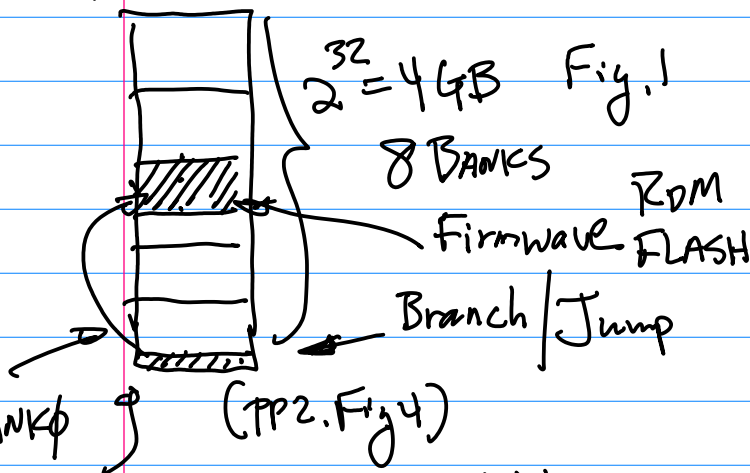 2^32 = 4 GB Fig. 1
8 BANKS
ROM
Firmwave FLASH
Branch / Jump
NKφ
(PP2. Fig 4)